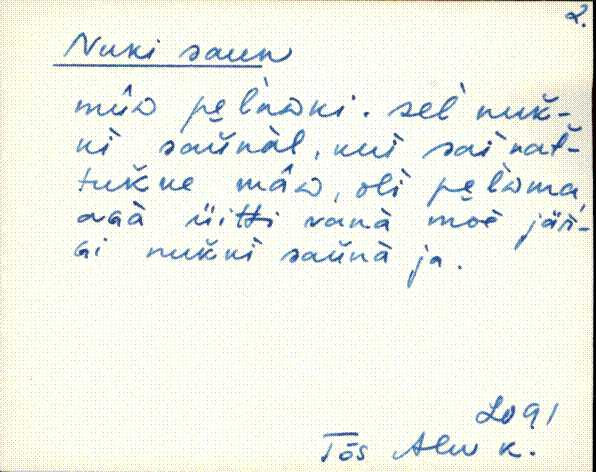 2.
Nuki saun
mûω pe̮l̀nωki. sel̀ nuk̆-
kì̬ sau̬nàl, kui sai nat̆-
tuk̆ne mâω, olì̬ pe̮l̀ωma,
agà üitti vanà moè jär̆-
gi nuk̆kì̬ sau̬nà ja.
Lo 91
Tõs Alu k.